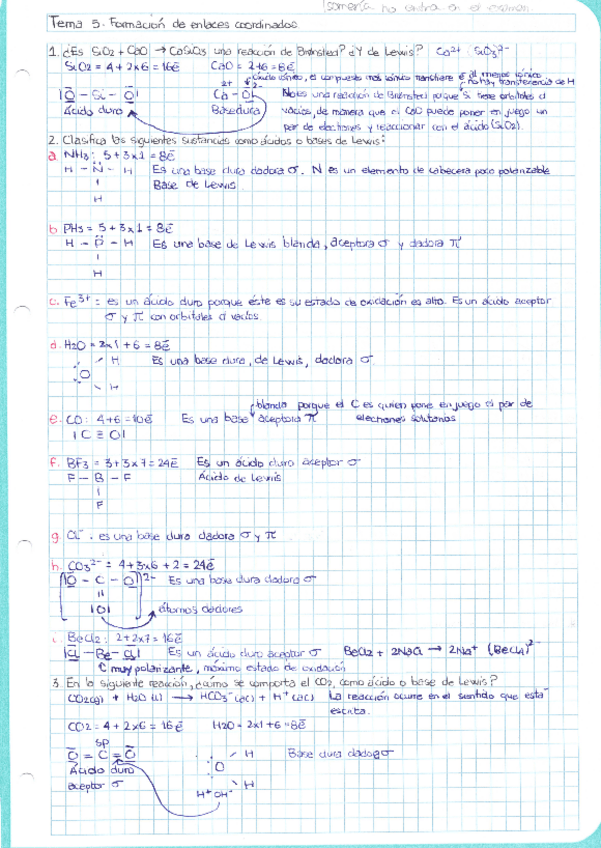 Isomería no entra en el examen
Tema 5. Formación de enlaces coordinados
1. ¿Es SiO2 + CaO → CaSiO3 una reacción de Brønsted? ¿Y de Lewis? Ca2+ SiO3 2-
SiO2 = 4 + 2x6 = 16ē CaO = 2+6 = 8ē
Ácido duro Base dura
No es una reacción de Brønsted porque Si tiene orbitales d
vacíos, de manera que el CaO puede poner en juego un
par de electrones y reaccionar con el ácido (SiO2).
2. Clasifica las siguientes sustancias como ácidos o bases de Lewis:
a. NH3: 5 + 3x1 = 8ē
H - N̈ - H Es una base dura dadora σ. N es un elemento de cabecera poco polarizable
Base de Lewis
H
b. PH3 = 5 + 3x1 = 8ē
H - P̈ - H Es una base de Lewis blanda, aceptora σ y dadora π
H
c. Fe3+ = es un ácido duro porque éste es su estado de oxidación es alto. Es un ácido aceptor
σ y π con orbitales d vacíos.
d. H2O = 2x1 + 6 = 8ē
H Es una base dura, de Lewis, dadora σ
O
H
blanda porque el C es quien pone en juego el par de
e. CO: 4+6 = 10ē Es una base aceptora π electrones solitarios
|C ≡ O|
f. BF3 = 3 + 3x7 = 24ē Es un ácido duro aceptor σ
F - B - F Ácido de Lewis
F
g. Cl-: es una base dura dadora σ y π
h. CO3 2- = 4 + 3x6 + 2 = 24ē
[|O - C - O|]2- Es una base dura dadora σ
|O| átomos dadores
i. BeCl2: 2+2x7 = 16ē
|Cl - Be - Cl| Es un ácido duro aceptor σ BeCl2 + 2NaCl → 2Na+ (BeCl4)2-
muy polarizante, máximo estado de oxidación
3. En la siguiente reacción, ¿cómo se comporta el CO2, como ácido o base de Lewis?
CO2(g) + H2O (l) → HCO3-(ac) + H+(ac) La reacción ocurre en el sentido que está
escrita.
CO2 = 4 + 2x6 = 16ē H2O = 2x1 + 6 = 8ē
sp
O = C = O H Base dura dadora σ
Ácido duro O
aceptor σ H
H+ OH-